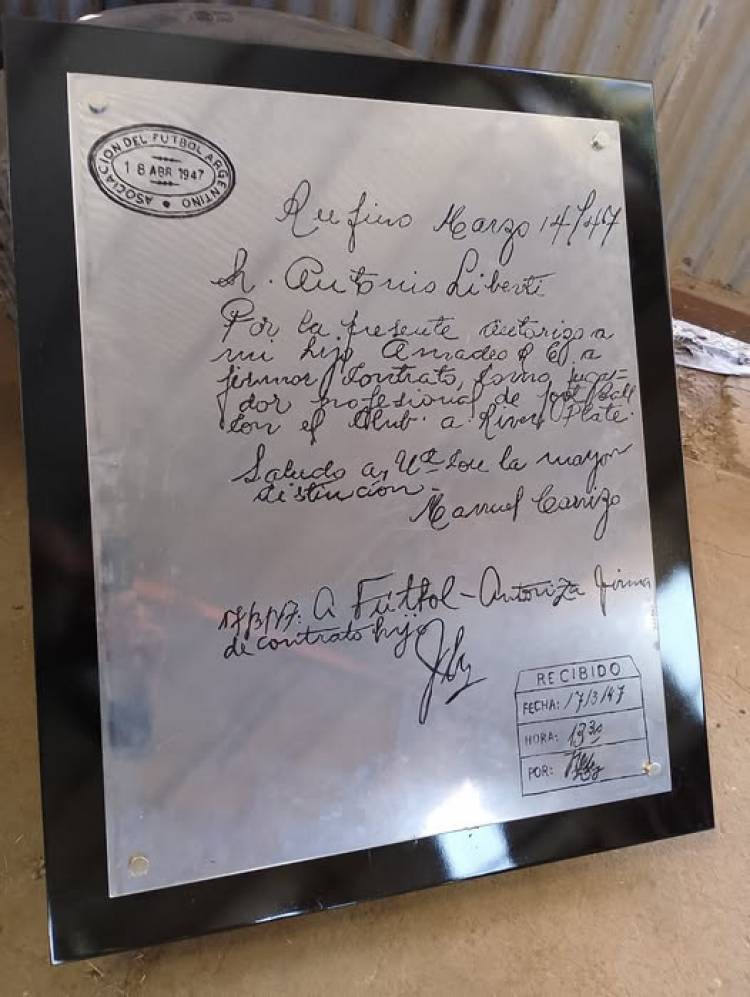 ASOCIACION DEL FUTBOL ARGENTINO
18 ABR 1947
Rufino Marzo 14/47
Sr. Antonio Liberti
Por la presente autorizo a
mi hijo Amadeo R C. a
firmar Contrato, como juga-
dor profesional de foot Ball
con el Club. a. River Plate.
Saludo a Ud con la mayor
distinción.-
Manuel Carrizo
17/3/47: A Fútbol - Autoriza firma
de contrato hijo
RECIBIDO
FECHA: 17/3/47
HORA: 13 30
POR: